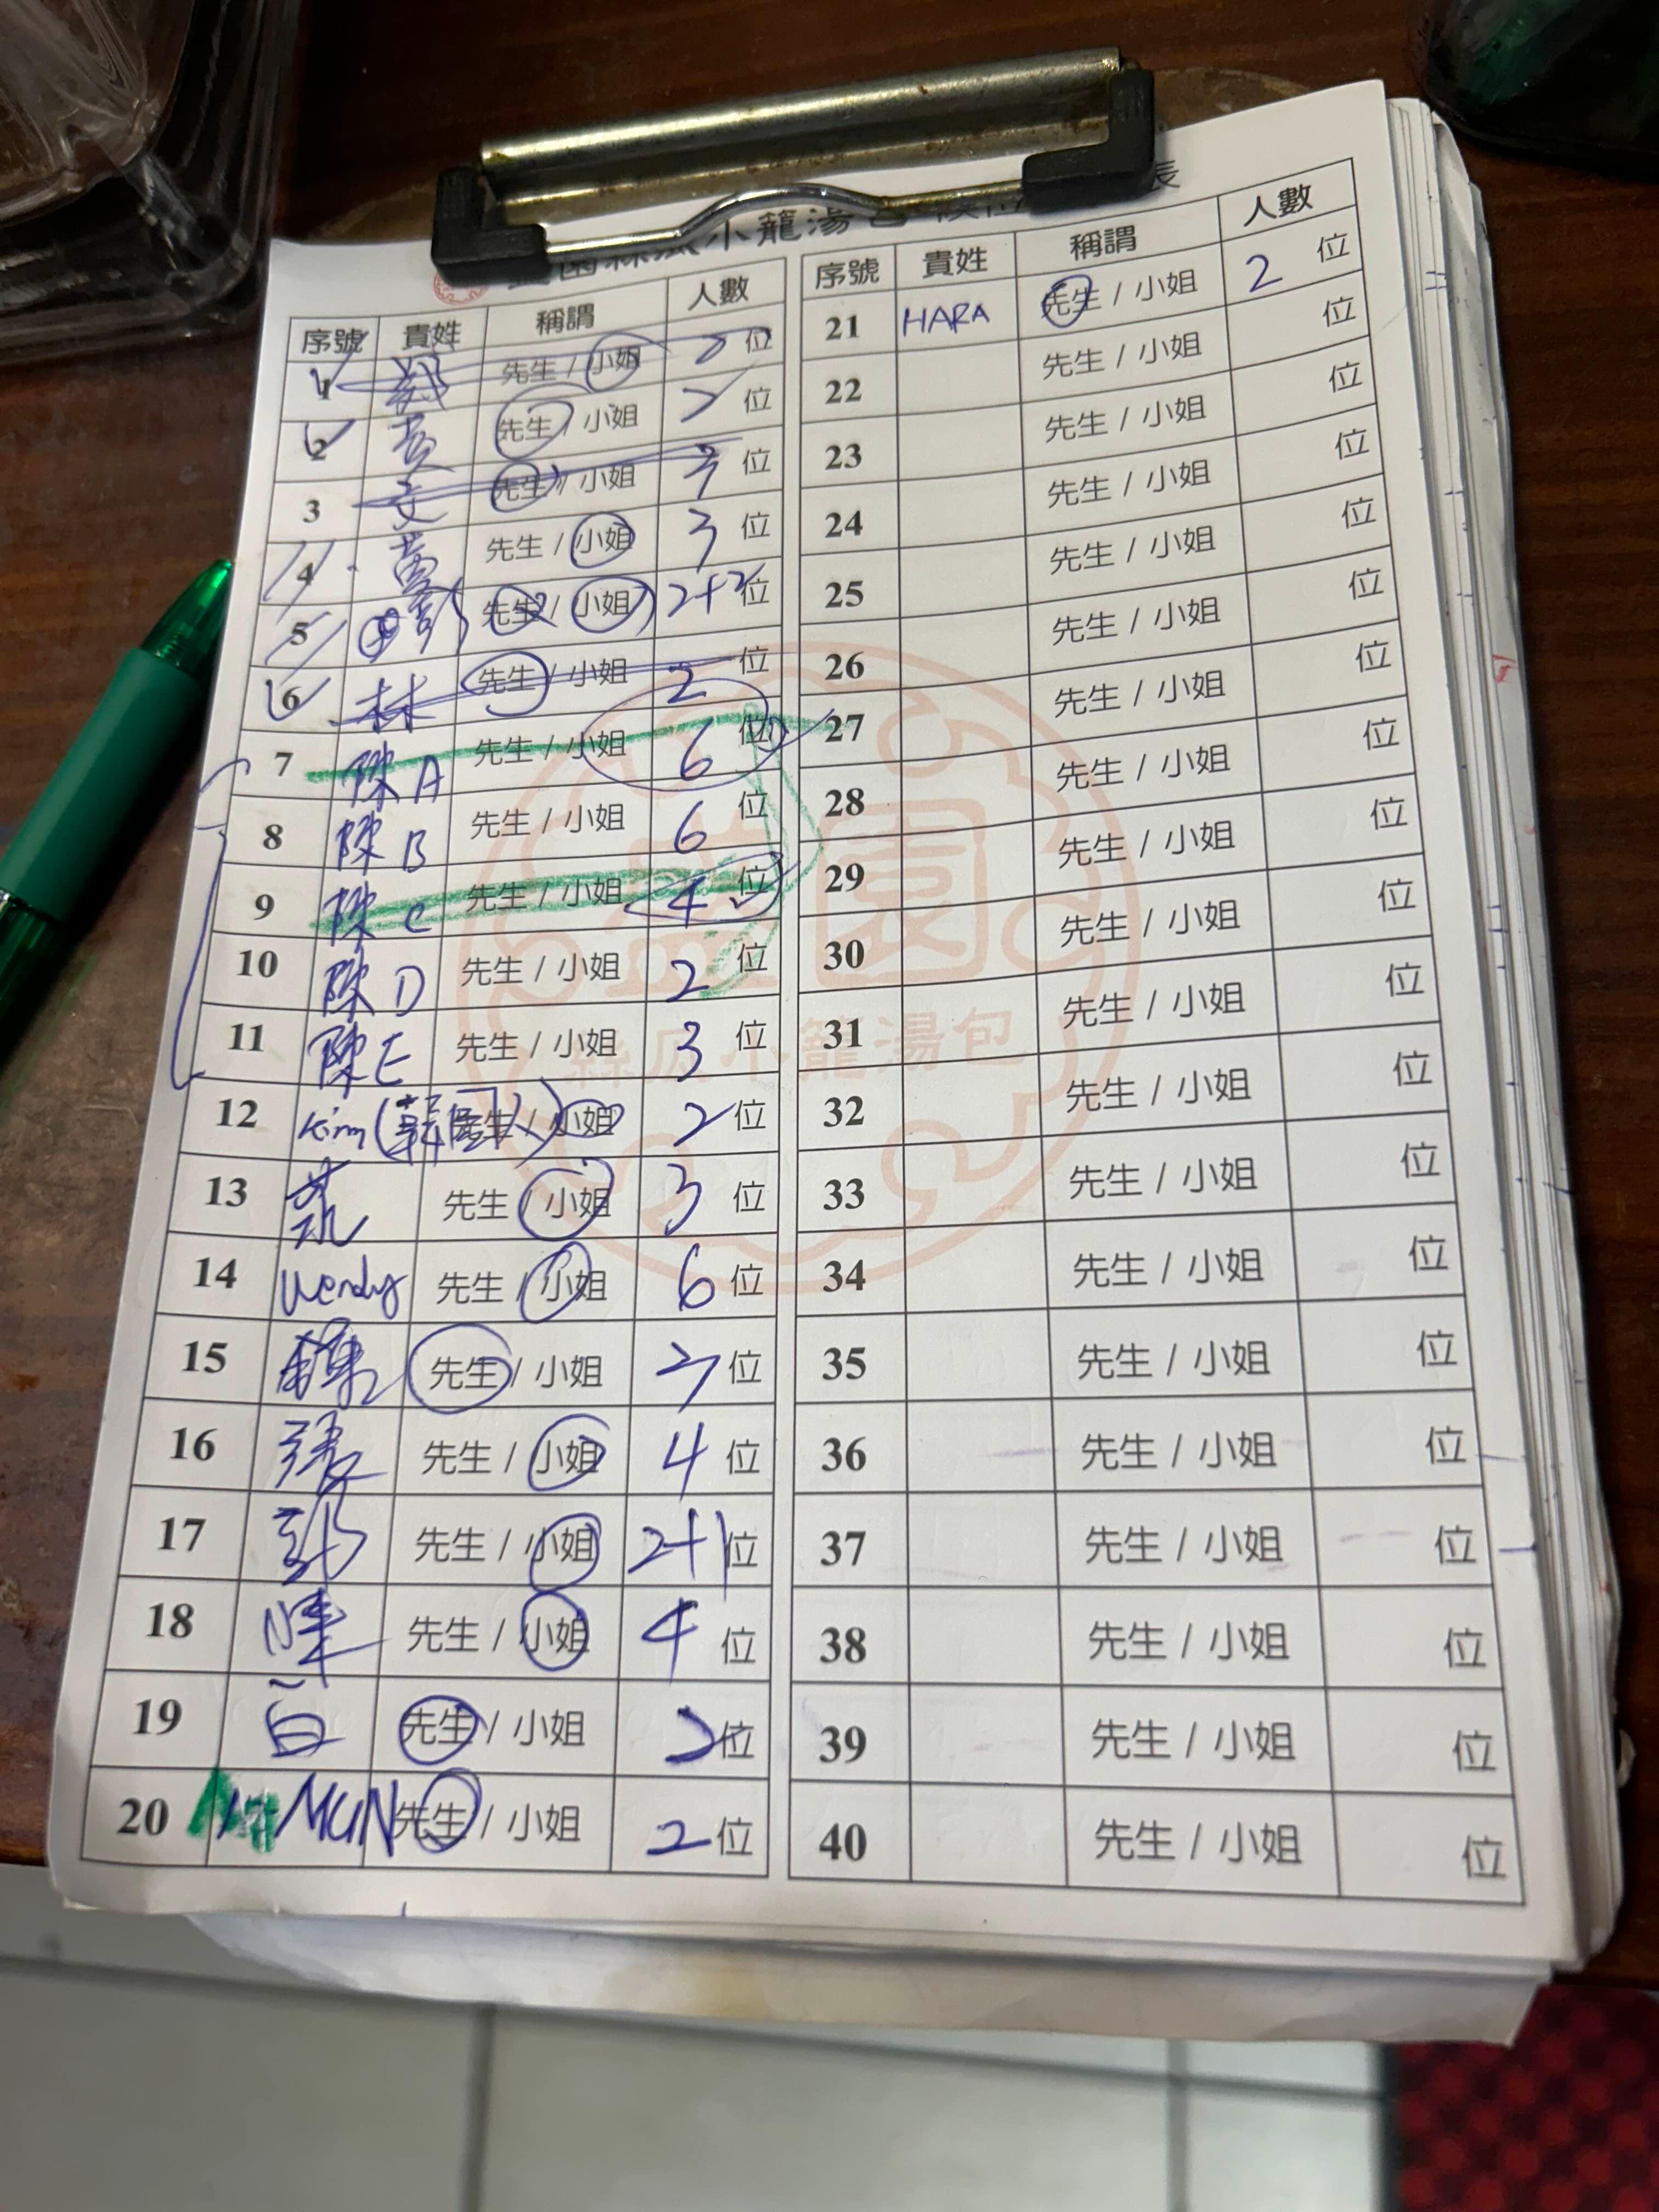 小籠湯包
序號 貴姓 稱謂 人數
1 先生 / 小姐 2 位
2 黃 先生 / 小姐 2 位
3 文 先生 / 小姐 位
4 黃 先生 / 小姐 3 位
5 彭 先生 / 小姐 2+2 位
6 林 先生 / 小姐 2 位
7 陳 A 先生 / 小姐 6 位
8 陳 B 先生 / 小姐 6 位
9 陳 C 先生 / 小姐 4 位
10 陳 D 先生 / 小姐 2 位
11 陳 E 先生 / 小姐 3 位
12 Kim 先生 / 小姐 2 位
13 先生 / 小姐 3 位
14 Wendy 先生 / 小姐 6 位
15 先生 / 小姐 2 位
16 張 先生 / 小姐 4 位
17 彭 先生 / 小姐 2+1 位
18 陳 先生 / 小姐 4 位
19 白 先生 / 小姐 2 位
20 MUN 先生 / 小姐 2 位
序號 貴姓 稱謂 人數
21 HARA 先生 / 小姐 2 位
22 先生 / 小姐 位
23 先生 / 小姐 位
24 先生 / 小姐 位
25 先生 / 小姐 位
26 先生 / 小姐 位
27 先生 / 小姐 位
28 先生 / 小姐 位
29 先生 / 小姐 位
30 先生 / 小姐 位
31 先生 / 小姐 位
32 先生 / 小姐 位
33 先生 / 小姐 位
34 先生 / 小姐 位
35 先生 / 小姐 位
36 先生 / 小姐 位
37 先生 / 小姐 位
38 先生 / 小姐 位
39 先生 / 小姐 位
40 先生 / 小姐 位
益園
絲瓜小籠湯包